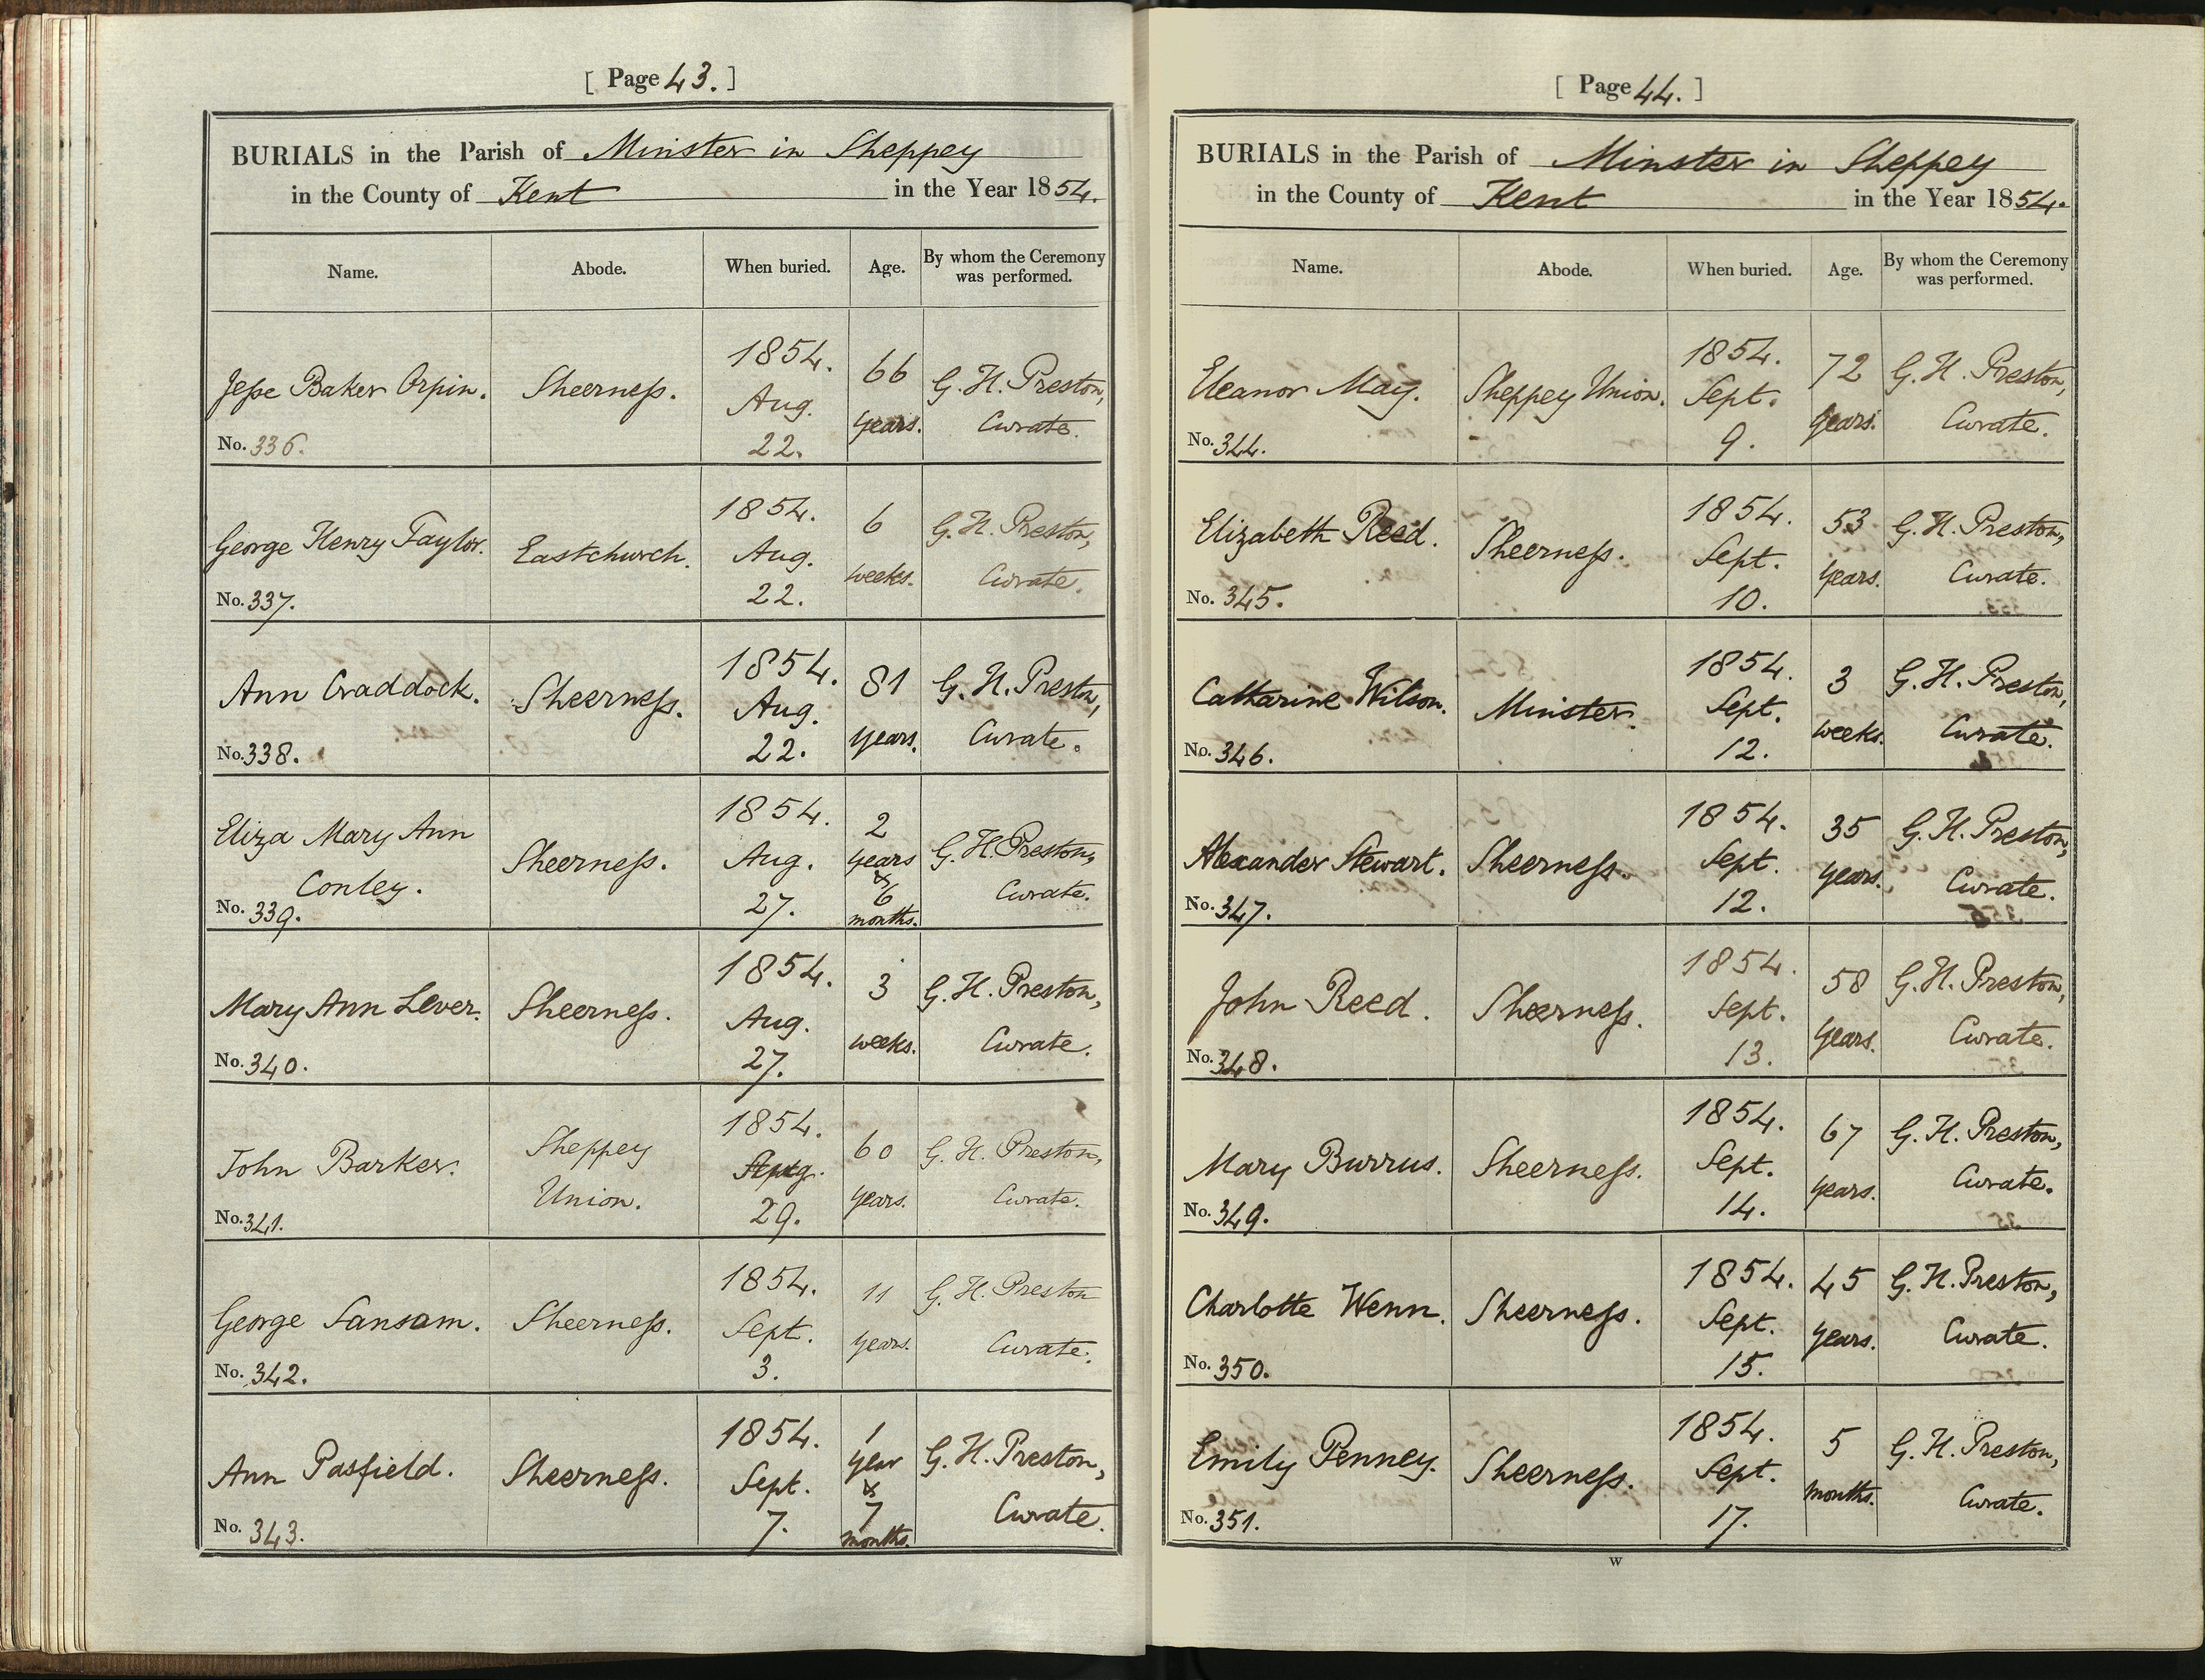 [ Page 43. ]
BURIALS in the Parish of Minster in Sheppey
in the County of Kent in the Year 1854.
Name. Abode. When buried. Age. By whom the Ceremony
was performed.
Jesse Baker Orpin. Sheerness. 1854. Aug. 22. 66 years. G. H. Preston, Curate.
No. 336.
George Henry Taylor. Eastchurch. 1854. Aug. 22. 6 weeks. G. H. Preston, Curate.
No. 337.
Ann Craddock. Sheerness. 1854. Aug. 22. 81 years. G. H. Preston, Curate.
No. 338.
Eliza Mary Ann Conley. Sheerness. 1854. Aug. 27. 2 years & 6 months. G. H. Preston, Curate.
No. 339.
Mary Ann Lever. Sheerness. 1854. Aug. 27. 3 weeks. G. H. Preston, Curate.
No. 340.
John Barker. Sheppey Union. 1854. 29. 60 years. G. H. Preston, Curate.
No. 341.
George Sansam. Sheerness. 1854. Sept. 3. 11 years. G. H. Preston Curate.
No. 342.
Ann Pasfield. Sheerness. 1854. Sept. 7. 1 year & 7 months. G. H. Preston, Curate.
No. 343.
[ Page 44. ]
BURIALS in the Parish of Minster in Sheppey
in the County of Kent in the Year 1854.
Name. Abode. When buried. Age. By whom the Ceremony
was performed.
Eleanor May. Sheppey Union. 1854. Sept. 9. 72 years. G. H. Preston, Curate.
No. 344.
Elizabeth Reed. Sheerness. 1854. Sept. 10. 53 years. G. H. Preston, Curate.
No. 345.
Catharine Wilson. Minster. 1854. Sept. 12. 3 weeks. G. H. Preston, Curate.
No. 346.
Alexander Stewart. Sheerness. 1854. Sept. 12. 35 years. G. H. Preston, Curate.
No. 347.
John Reed. Sheerness. 1854. Sept. 13. 58 years. G. H. Preston, Curate.
No. 348.
Mary Burrus. Sheerness. 1854. Sept. 14. 67 years. G. H. Preston, Curate.
No. 349.
Charlotte Wenn. Sheerness. 1854. Sept. 15. 45 years. G. H. Preston, Curate.
No. 350.
Emily Penney. Sheerness. 1854. Sept. 17. 5 months. G. H. Preston, Curate.
No. 351.
W